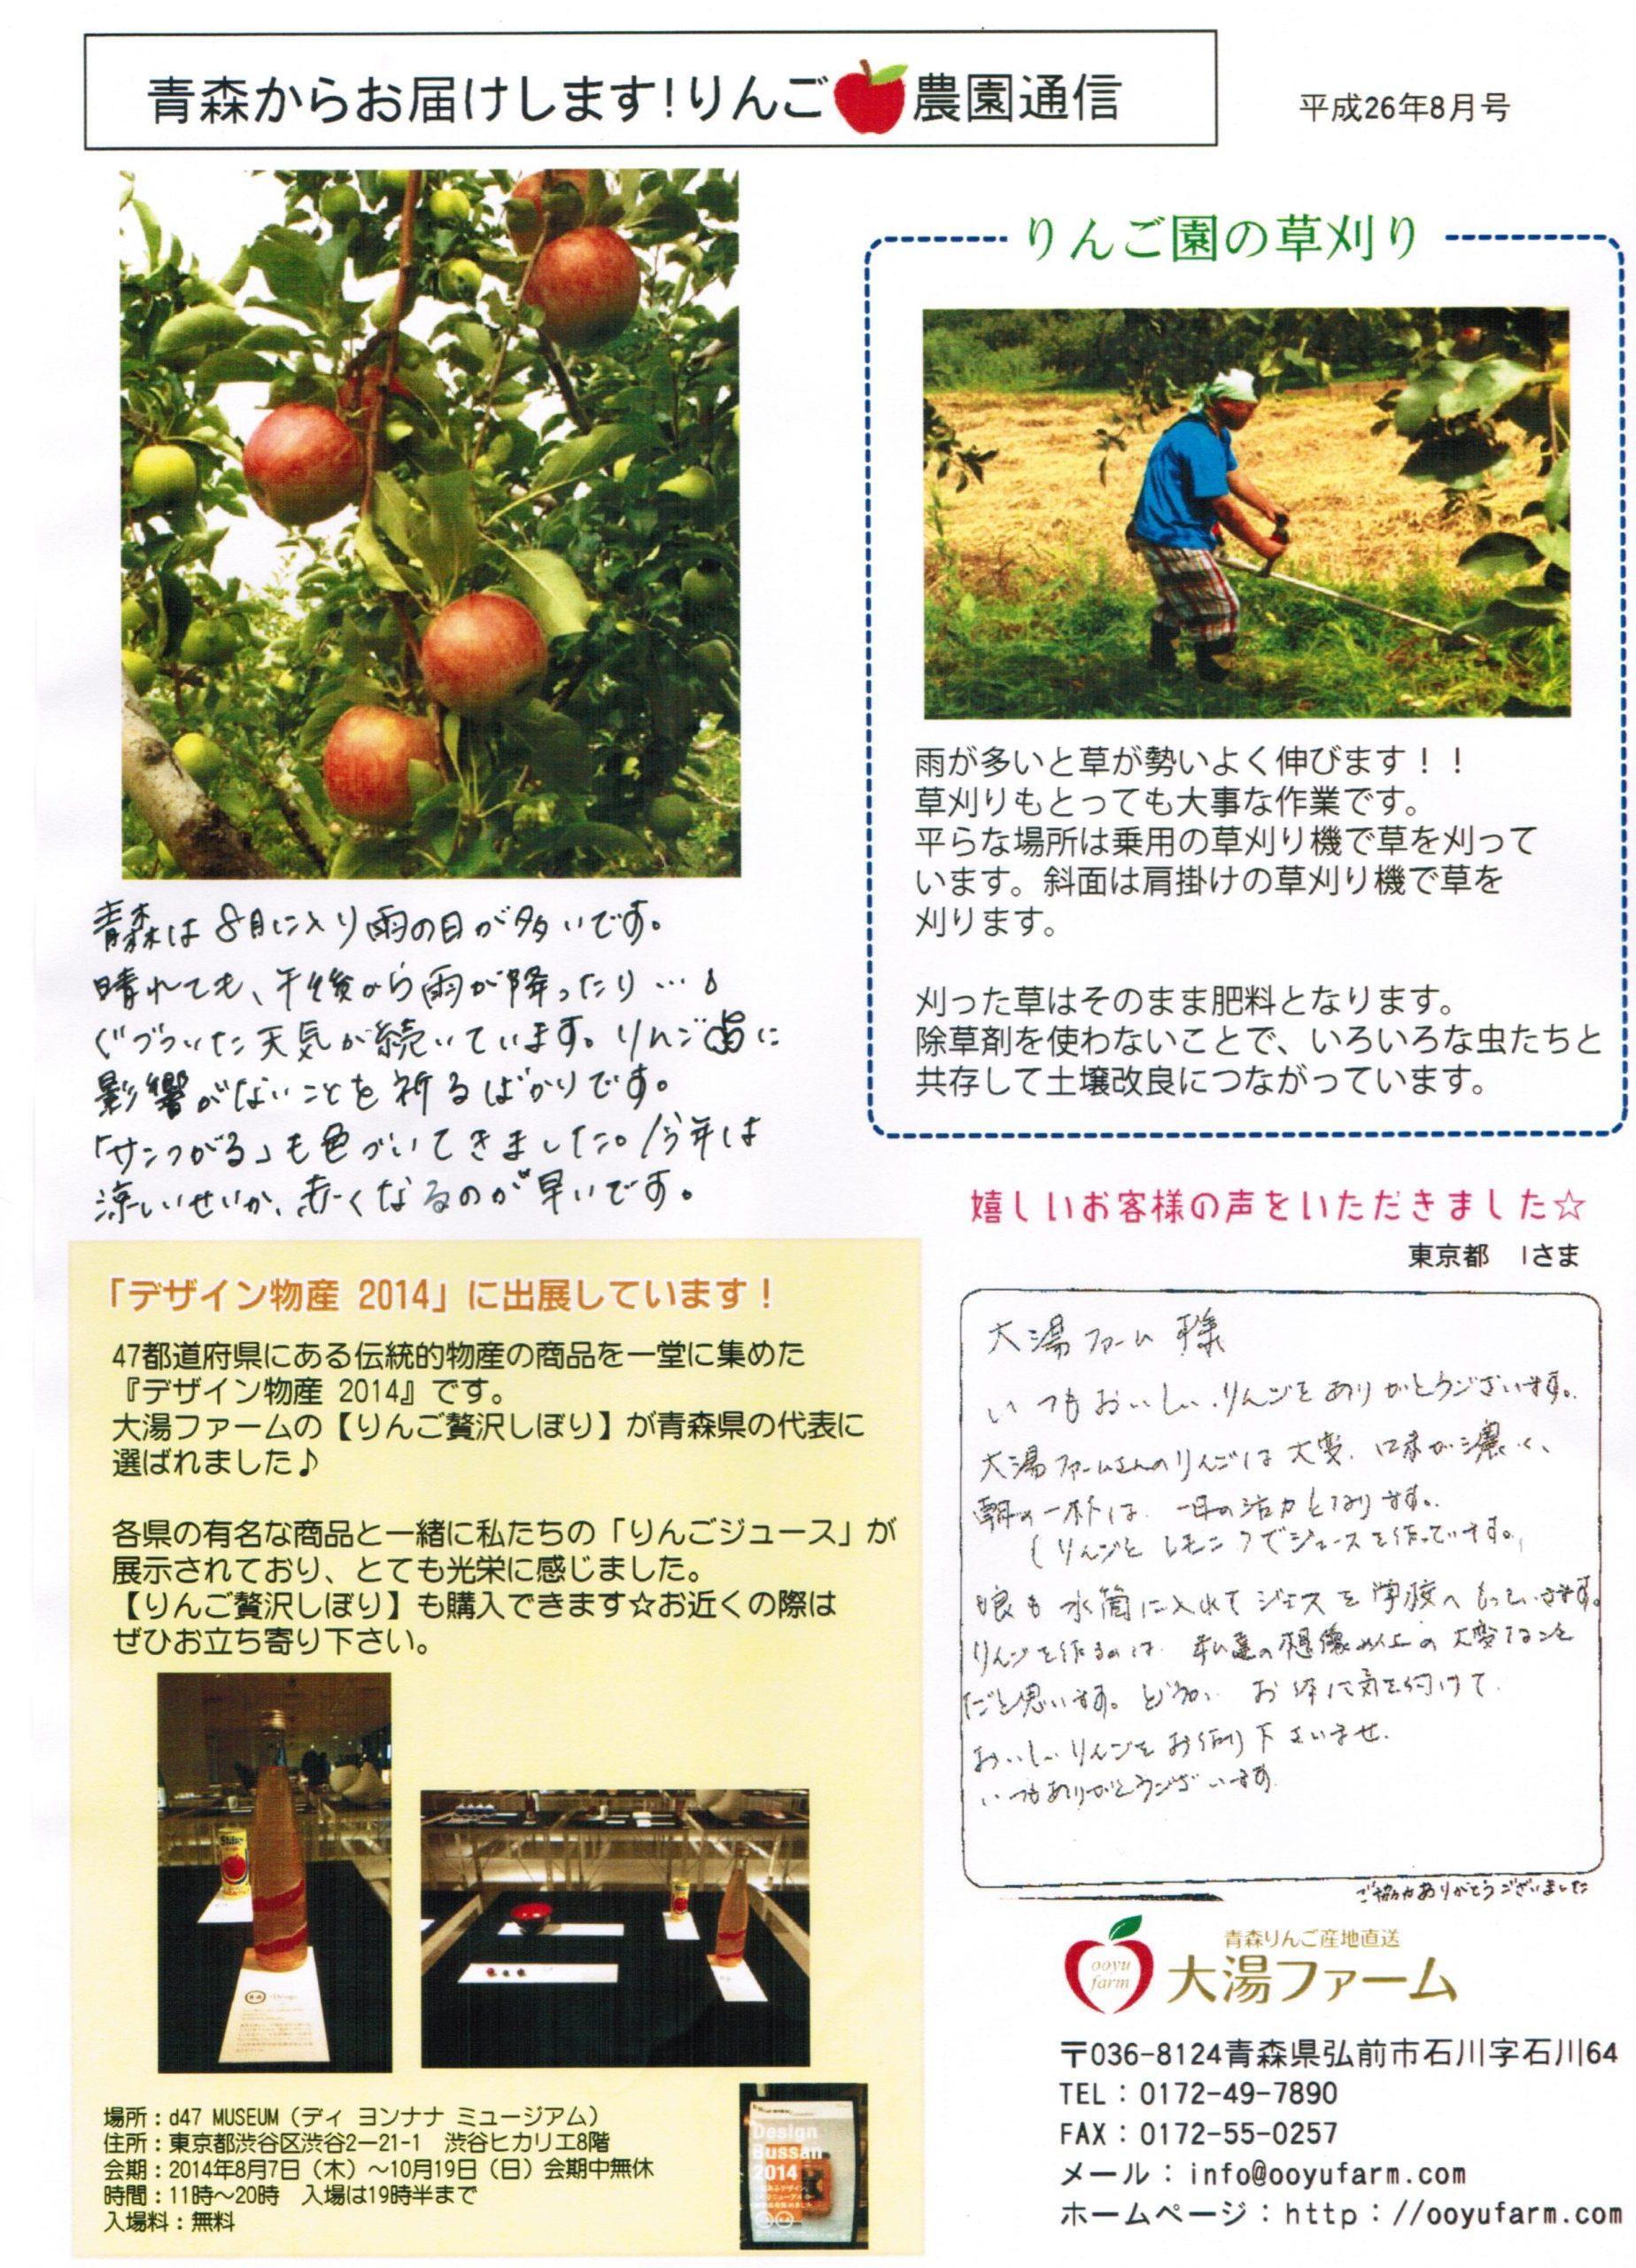 青森からお届けします!りんご農園通信
平成26年8月号
青森は8月に入り雨の日が多いです。
晴れても、午後から雨が降ったり…
ぐづついた天気が続いています。りんごに
影響がないことを祈るばかりです。
「サンつがる」も色づいてきました。今年は
涼しいせいか、赤くなるのが早いです。
りんご園の草刈り
雨が多いと草が勢いよく伸びます！！
草刈りもとっても大事な作業です。
平らな場所は乗用の草刈り機で草を刈って
います。斜面は肩掛けの草刈り機で草を
刈ります。
刈った草はそのまま肥料となります。
除草剤を使わないことで、いろいろな虫たちと
共存して土壌改良につながっています。
「デザイン物産 2014」に出展しています！
47都道府県にある伝統的物産の商品を一堂に集めた
『デザイン物産 2014』です。
大湯ファームの【りんご贅沢しぼり】が青森県の代表に
選ばれました♪
各県の有名な商品と一緒に私たちの「りんごジュース」が
展示されており、とても光栄に感じました。
【りんご贅沢しぼり】も購入できます☆お近くの際は
ぜひお立ち寄り下さい。
場所：d47 MUSEUM（ディ ヨンナナ ミュージアム）
住所：東京都渋谷区渋谷2ー21-1　渋谷ヒカリエ8階
会期：2014年8月7日（木）～10月19日（日）会期中無休
時間：11時～20時　入場は19時半まで
入場料：無料
Design
Bussan
2014
嬉しいお客様の声をいただきました☆
東京都　Iさま
大湯ファーム 様
いつもおいしいりんごをありがとうございます。
大湯ファームさんのりんごは大変、味が濃く、
朝の一杯は、一日の活力となります。
(りんごとレモン)でジュースを作っています。
娘も水筒に入れてジュースを学校へもっていきます。
りんごを作るのは、私達の想像以上の大変なこと
だと思います。どうか、お体に気を付けて
おいしいりんごをお作り下さいませ。
いつもありがとうございます。
ご協力ありがとうございました
ooyu
farm
青森りんご産地直送
大湯ファーム
〒036-8124青森県弘前市石川字石川64
TEL：0172-49-7890
FAX：0172-55-0257
メール：info@ooyufarm.com
ホームページ：http：//ooyufarm.com